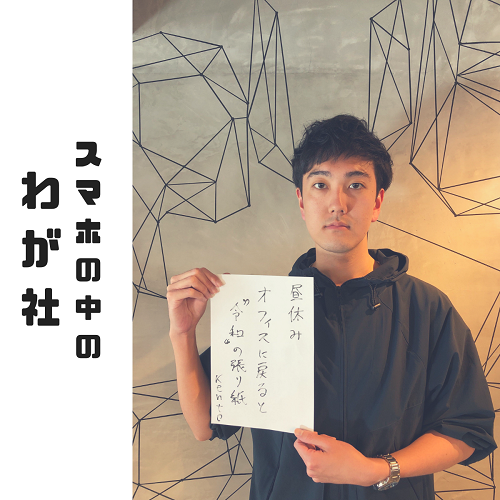 スマホの中の
わが社
昼休み
オフィスに戻ると
"令和"の張り紙
Kento